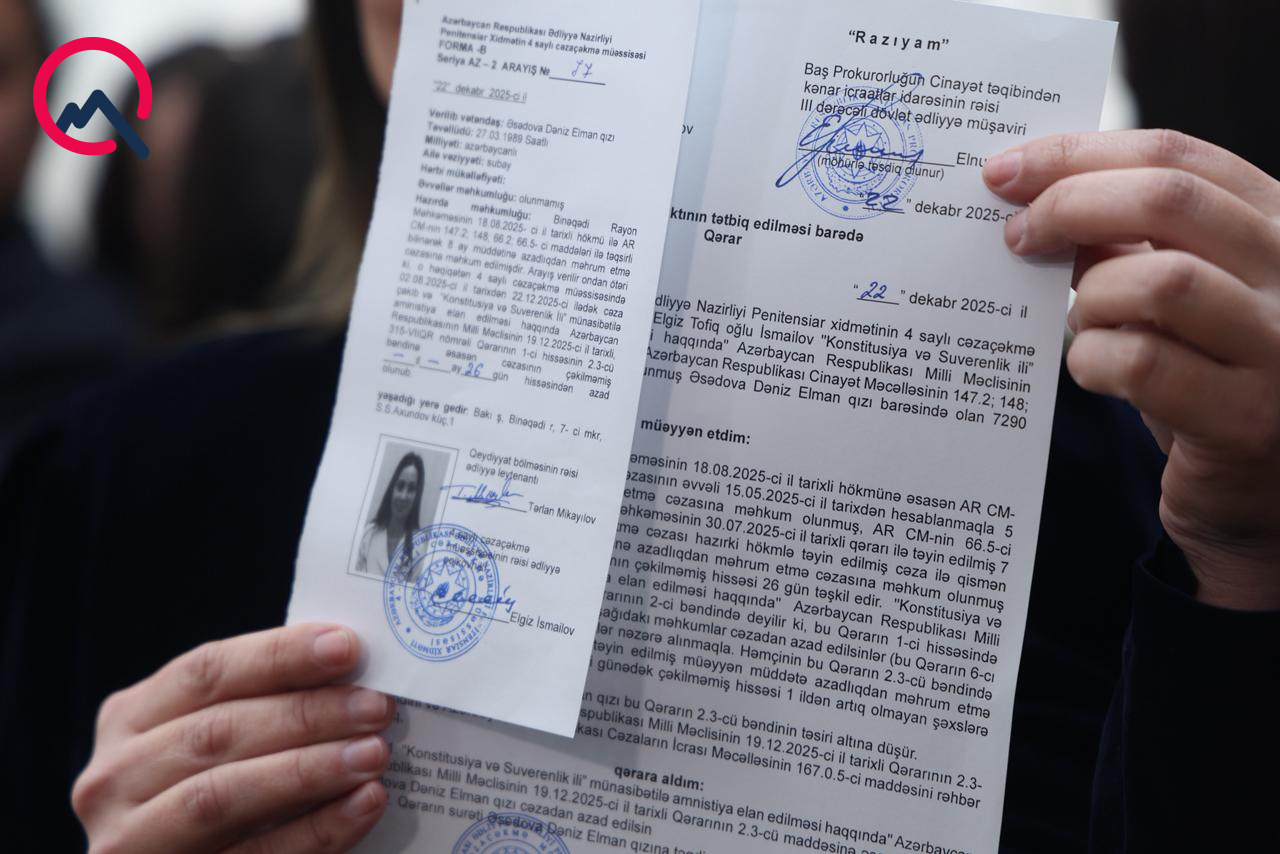 Azərbaycan Respublikası Ədliyyə Nazirliyi
Penitensiar Xidmətin 4 saylı cəzaçəkmə müəssisəsi
FORMA -B
Seriya AZ – 2 ARAYIŞ № 77
"22" dekabr 2025-ci il
Verilib vətəndaş: Əsədova Dəniz Elman qızı
Təvəllüdü: 27.03.1989 Saatlı
Milliyəti: azərbaycanlı
Ailə vəziyyəti: subay
Hərbi mükəlləfiyəti:
Əvvəllər məhkumluğu: olunmamış
Hazırda məhkumluğu: Binəqədi Rayon
Məhkəməsinin 18.08.2025- ci il tarixli hökmü ilə AR
CM-nin 147.2; 148; 66.2; 66.5- ci maddələri ilə təqsirli
bilinərək 8 ay müddətinə azadlıqdan məhrum etmə
cəzasına məhkum edilmişdir. Arayış verilir ondan ötəri
ki, o həqiqətən 4 saylı cəzaçəkmə müəssisəsində
02.08.2025-ci il tarixdən 22.12.2025-ci ilədək cəza
çəkib və "Konstitusiya və Suverenlik İli" münasibətilə
amnistiya elan edilməsi haqqında Azərbaycan
Respublikasının Milli Məclisinin 19.12.2025-ci il tarixli,
315-VIIQR nömrəli Qərarının 1-ci hissəsinin 2.3-cü
bəndinə əsasən cəzasının çəkilməmiş
– il – ay 26 gün hissəsindən azad
olunub.
yaşadığı yerə gedir: Bakı ş. Binəqədi r, 7- ci mkr,
S.S.Axundov küç,1
Qeydiyyat bölməsinin rəisi
ədliyyə leytenantı
Tərlan Mikayılov
4 saylı cəzaçəkmə
müəssisəsinin rəisi ədliyyə
Elgiz İsmailov
"Razıyam"
Baş Prokurorluğun Cinayət təqibindən
kənar icraatlar idarəsinin rəisi
III dərəcəli dövlət ədliyyə müşaviri
Elnu
(möhürlə təsdiq olunur)
"22" dekabr 2025-c
ov
ktının tətbiq edilməsi barədə
Qərar
"22" dekabr 2025-ci il
dliyyə Nazirliyi Penitensiar xidmətinin 4 saylı cəzaçəkmə
Elgiz Tofiq oğlu İsmailov "Konstitusiya və Suverenlik ili"
i haqqında" Azərbaycan Respublikası Milli Məclisinin
Azərbaycan Respublikası Cinayət Məcəlləsinin 147.2; 148;
unmuş Əsədova Dəniz Elman qızı barəsində olan 7290
müəyyən etdim:
əməsinin 18.08.2025-ci il tarixli hökmünə əsasən AR CM-
əzasının əvvəli 15.05.2025-ci il tarixdən hesablanmaqla 5
etmə cəzasına məhkum olunmuş, AR CM-nin 66.5-ci
əhkəməsinin 30.07.2025-ci il tarixli qərarı ilə təyin edilmiş 7
mə cəzası hazırki hökmlə təyin edilmiş cəza ilə qismən
nə azadlıqdan məhrum etmə cəzasına məhkum olunmuş
nın çəkilməmiş hissəsi 26 gün təşkil edir. "Konstitusiya və
a elan edilməsi haqqında" Azərbaycan Respublikası Milli
ərarının 2-ci bəndində deyilir ki, bu Qərarın 1-ci hissəsində
şağıdakı məhkumlar cəzadan azad edilsinlər (bu Qərarın 6-cı
lər nəzərə alınmaqla. Həmçinin bu Qərarın 2.3-cü bəndində
təyin edilmiş müəyyən müddətə azadlıqdan məhrum etmə
i günədək çəkilməmiş hissəsi 1 ildən artıq olmayan şəxslərə
n qızı bu Qərarın 2.3-cü bəndinin təsiri altına düşür.
spublikası Milli Məclisinin 19.12.2025-ci il tarixli Qərarının 2.3-
kası Cəzaların İcrası Məcəlləsinin 167.0.5-ci maddəsini rəhbər
qərara aldım:
1. "Konstitusiya və Suverenlik ili" münasibətilə amnistiya elan edilməsi haqqında" Azərbayca
ublikası Milli Məclisinin 19.12.2025-ci il tarixli Qərarının 2.3-cü maddəsinə
dova Dəniz Elman qızı cəzadan azad edilsin
Qərarın surəti Əsədova Dəniz Elman qızına